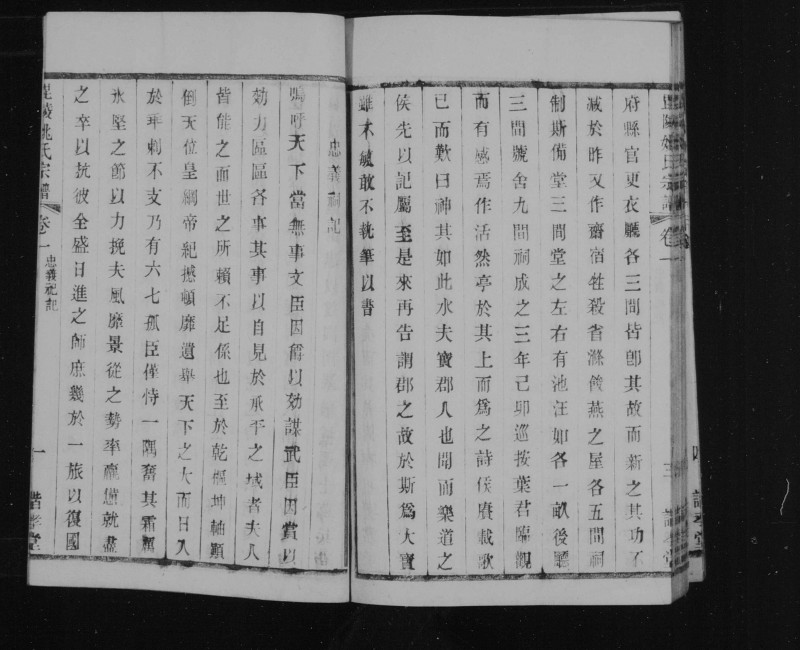 府縣官更衣廳各三間皆卽其故而新之其功不
減於昨又作齋宿牲殺省滌餕燕之屋各五間祠
制斯備堂三間堂之左右有池汪如各一畝後廳
三間號舍九間祠成之三年己卯巡按葉君臨觀
而有感焉作活然亭於其上而爲之詩侯賡載歌
已而歎曰神其如此水夫寶郡人也聞而樂道之
侯先以記屬至是來再告謂郡之故於斯爲大寶
雖不敢不執筆以書
忠義祠記
嗚呼天下當無事文臣因爵以効謀武臣因賞以
効力區區各事其事以自見於承平之域者夫人
皆能之而世之所賴不足係也至於乾樞坤軸顚
倒天位皇綱帝紀撼頓靡遺舉天下之大而日入
於乖剌不支乃有六七孤臣僅恃一隅奮其霜
氷堅之節以力挽夫風靡景從之勢率就盡
之卒以抗彼全盛日進之師庶幾於一旅以復國
毘陵姚氏宗譜
卷一
忠義祠記
一